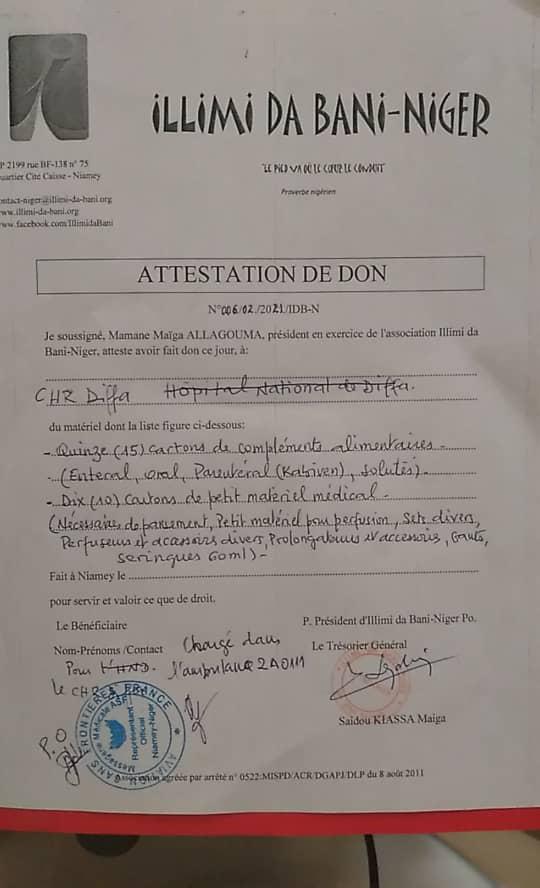 ILLIMI DA BANI-NIGER
LE PIED VA OÙ LE CŒUR LE CONDUIT
Proverbe nigérien
P 2199 rue BF-138 n° 75
uartier Cité Caisse - Niamey
ontact-niger@illimi-da-bani.org
ww.illimi-da-bani.org
ww.facebook.com/IllimidaBani
ATTESTATION DE DON
N°006/02./2021/IDB-N
Je soussigné, Mamane Maïga ALLAGOUMA, président en exercice de l'association Illimi da
Bani-Niger, atteste avoir fait don ce jour, à:
CHR Diffa Hôpital National de Diffa.
du matériel dont la liste figure ci-dessous:
- Quinze (15) cartons de compléments alimentaires
(Enteral, oral, Parentéral (Kabiven), solutés)-
- Dix (10) cartons de petit matériel médical -
(Nécessaires de pansement, Petit matériel pour perfusion, Sets divers,
Perfuseurs et accessoires divers, Prolongateurs et accessoires, Gants,
seringues 60ml)-
Fait à Niamey le
pour servir et valoir ce que de droit.
Le Bénéficiaire
P. Président d'Illimi da Bani-Niger Po.
Nom-Prénoms /Contact Chargé dans
Le Trésorier Général
Pour l'HND. l'ambulance 2A0111
le CHR
P.O
AVIATION SANS FRONTIERES FRANCE
Messagerie Médicale ASF
Représentant
Officiel
Niamey-Niger
Saidou KIASSA Maiga
Association agréée par arrêté n° 0522:MISPD/ACR/DGAPJ/DLP du 8 août 2011